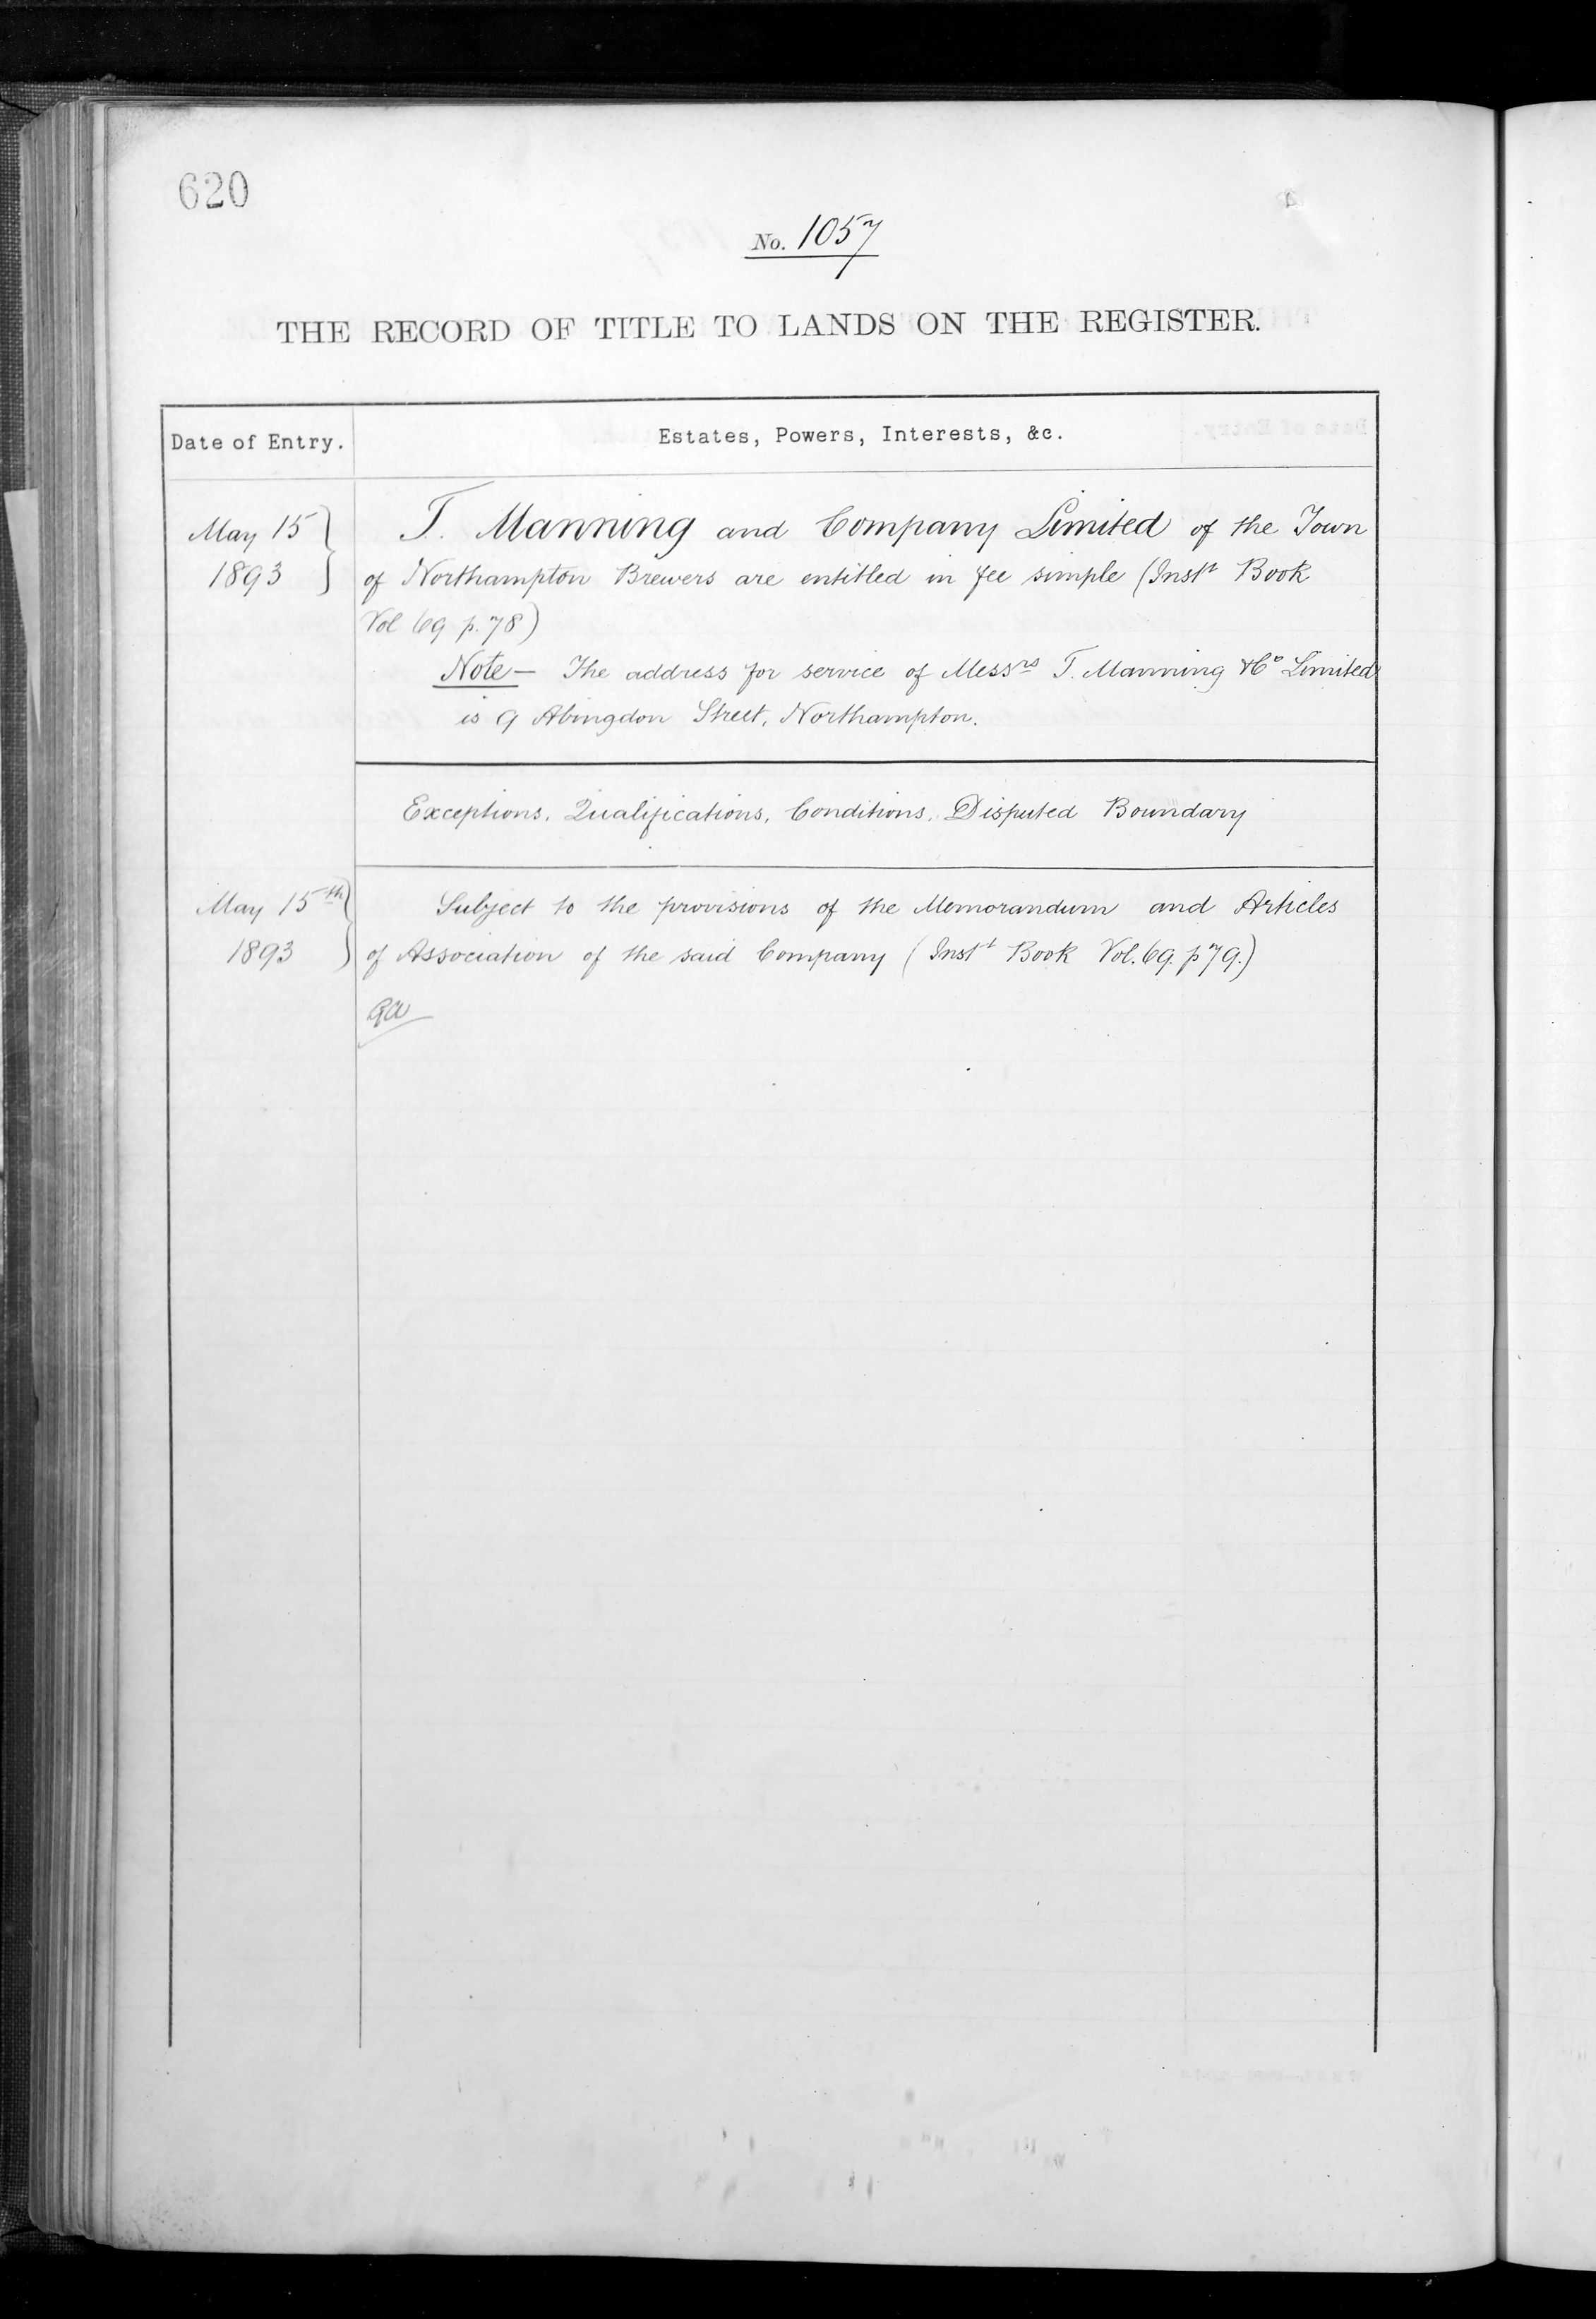 620
No. 1057
THE RECORD OF TITLE TO LANDS ON THE REGISTER.
Date of Entry.
Estates, Powers, Interests, &c.
May 15
1893
T. Manning and Company Limited of the Town
of Northampton Brewers are entitled in fee simple (Instt Book
Vol 69 p. 78)
Note — The address for service of Messrs T. Manning & Co Limited
is 9 Abingdon Street, Northampton.
Exceptions, Qualifications, Conditions, Disputed Boundary
May 15th
1893
Subject to the provisions of the Memorandum and Articles
of Association of the said Company (Instt Book Vol. 69. p 79.)